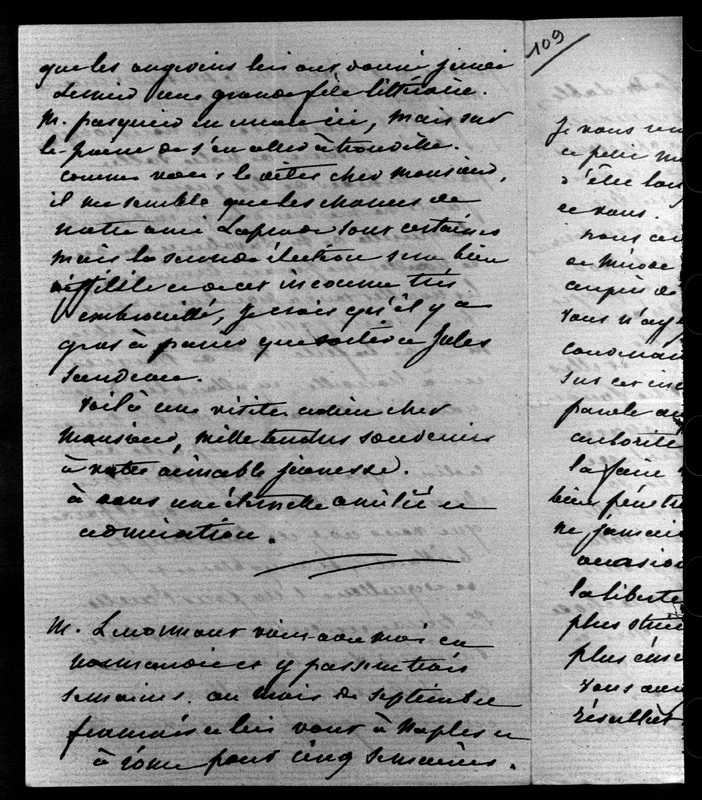 109
que les angevins lui ont donné jeudi
dernier une grande fête littéraire.
M. pasquier en mais sur
le point de s'en aller à trouville.
comme vous le dites cher monsieur,
il me semble que les chances de
notre ami Laprade sont certaines
mais la seconde élection sera bien
difficile et cet inconnu très
embrouillé, je crois qu'il y a
gros à parier que sortira Jules
Sandeau.
Voilà une visite adieu cher
monsieur, mille tendres souvenirs
à votre aimable jeunesse.
à vous une éternelle amitié et
admiration.
M. Lenormant vient avec moi en
normandie et y passera trois
semaines. au mois de septembre
françois et lui vont à Naples et
à rome pour cinq semaines.
je vous
ce petit
d'être
et vous.
nous
de Mérode
auprès de
vous n'ay
sur ces
parole
autorité
la faire
bien pénétr
ne jamais
occasion
la liberté
plus
plus
vous
résultat